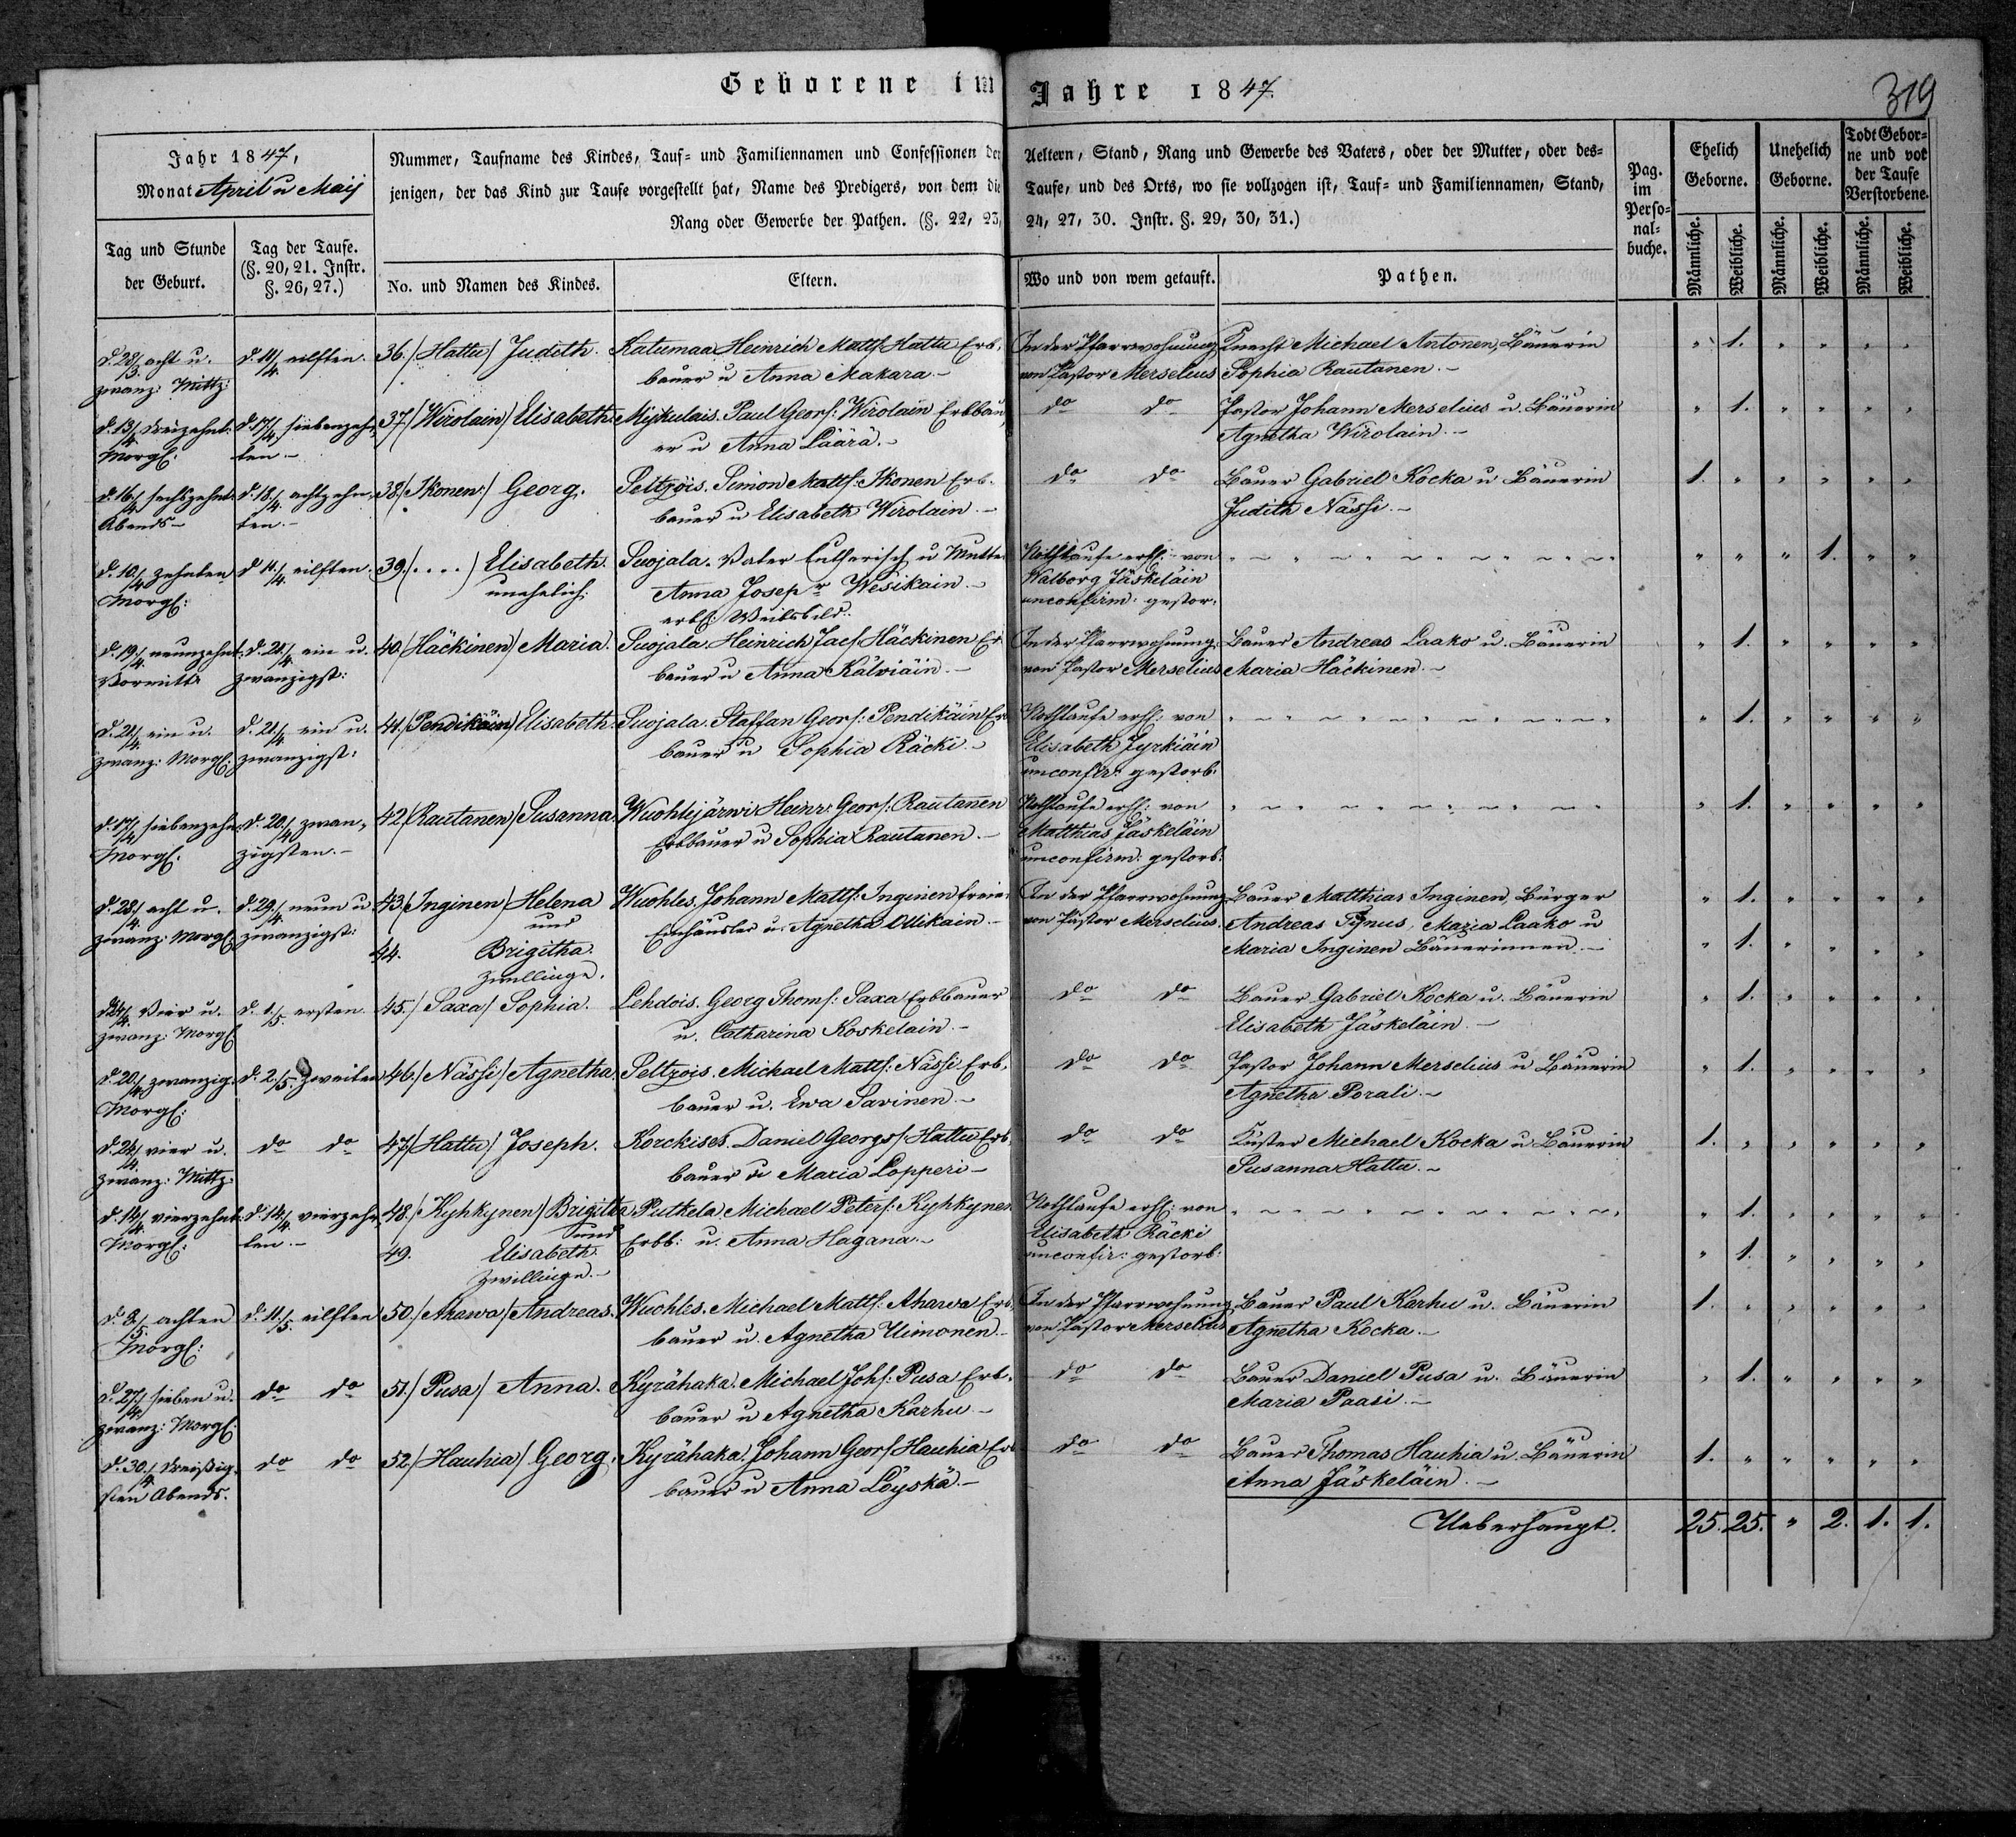 Geborene im Jahre 1847.
319
Jahr 1847,
Monat April u Maij
Nummer, Taufname des Kindes, Tauf- und Familiennamen und Confessionen der Aeltern, Stand, Rang und Gewerbe des Vaters, oder der Mutter, oder des-
jenigen, der das Kind zur Taufe vorgestellt hat, Name des Predigers, von dem die Taufe, und des Orts, wo sie vollzogen ist, Tauf- und Familiennamen, Stand,
Rang oder Gewerbe der Pathen. (§. 22, 23, 24, 27, 30. Instr. §. 29, 30, 31.)
Pag. im Perso-nal-buche.
Ehelich Geborne.
Unehelich Geborne.
Todt Gebor-ne und vor der Taufe Verstorbene.
Tag und Stunde der Geburt.
Tag der Taufe. (§. 20, 21. Instr. §. 26, 27.)
No. und Namen des Kindes.
Eltern.
Wo und von wem getauft.
Pathen.
Männliche. Weibliche. Männliche. Weibliche. Männliche. Weibliche.
d. 28/3. acht u. d. 11/4. eilften. 36./Hattu/ Judith. Katumaa Heinrich Matts. Hattu Erb- In der Pfarrwohnung Knecht Michael Antonen, Bäuerin " 1. " " " "
zwanz: Mittg: bauer u Anna Makara.- von Pastor Merselius Sophia Rautanen.-
d. 13/4. dreizehnt. d. 17/4. siebenzehn- 37./Wirolain/ Elisabeth. Mijkulais. Paul Geors: Wirolain Erbbau- do do Pastor Johann Merselius u. Bäuerin " 1. " " " "
Morgs: ten.- er u Anna Läärä.- Agnetha Wirolain.-
d. 16./4 sechszehnt. d. 18./4. achtzehn- 38./Ikonen:/ Georg. Peltzois. Simon Matts: Ikonen Erb- do do Bauer Gabriel Kocka u Bäuerin 1. " " " " "
Abends- ten.- bauer u Elisabeth Wirolain.- Judith Nässi.-
d. 10./4 zehnten d 11./4. eilften. 39./....) Elisabeth. Suojala. Vater Lutherisch u Mutter Nothtaufe erh: von " " " 1. " "
Morgs: unehelich: Anna Josepr Wesikain.- Walborg Jäskeläin
erbs: Weibsbild. unconfirm: gestor:
d. 19/4. neunzehnt. d. 21./4. ein u. 40./Häckinen/ Maria. Suojala Heinrich Jacs Häckinen Er In der Pfarrwohnung Bauer Andreas Laako u. Bäuerin " 1. " " " "
Vormitt zwanzigst: bauer u Anna Kälwiäin.- von Pastor Merselius Maria Häckinen.-
d. 21./4. ein u. d. 21./4. ein u. 41./Pendikäin/ Elisabeth. Suojala. Staffan Geors: Pendikäin Er Nothtaufe erh: von " 1. " " " "
zwanz: Morgs: zwanzigst: bauer u Sophia Räcki.- Elisabeth Jyrkiäin
unconfir: gestorb:
d. 17/4 siebenzehn d. 20./4 zwan- 42./Rautanen/ Susanna. Wuohlejärwi Heinr: Geors: Rautanen Nothtaufe erh: von " 1. " " " "
Morgs: zigsten.- Erbbauer u Sophia Rautanen.- Matthias Jäskeläin
unconfirm: gestorb:
d. 28./4. acht u. d. 29./4. neun u 43./Inginen/ Helena Wuohles. Johann Matts: Inginen freier In der Pfarrwohnung Bauer Matthias Inginen, Bürger " 1. " " " "
zwanz: Morgs: zwanzigst: und Einhäusler u. Agnetha Ollikain.- von Pastor Merselius. Andreas Tynus, Maria Laako u
44. Brigitha. Maria Inginen Bäuerinnen.- " 1. " " " "
Zwillinge.
d 24/4. vier u. d. 1./5. ersten. 45./Saxa/ Sophia. Lehdois. Georg Thoms: Saxa Erbbauer do do Bauer Gabriel Kocka u. Bäuerin " 1. " " " "
zwanz: Morgs u. Catharina Koskelain.- Elisabeth Jäskeläin.-
d. 20./4 zwanzig. d. 2./5. zweiten 46./Nässi/ Agnetha. Peltzois. Michael Matts: Nässi Erb- do do Pastor Johann Merselius u Bäuerin " 1. " " " "
Morgs: bauer u. Ewa Savinen.- Agnetha Porali.-
d. 24/4. vier u. do do 47./Hattu/ Joseph. Korckises. Daniel Georgs/ Hattu Erb do do Küster Michael Kocka u Bäuerin 1. " " " " "
zwanz: Mittg. bauer u Maria Lopperi- Susanna Hattu.-
d. 14/4. vierzehnt. d. 14./4. vierzehn- 48./Kyhkynen/ Brigitha Putkela Michael Peters: Kyhkynen Nothtaufe erh: von " 1. " " " "
Morgs: ten.- und Erbb: u. Anna Hagana.- Elisabeth Räcki
49. Elisabeth. unconfir: gestorb: " 1. " " " "
Zwillinge.-
d. 8./5. achten d. 11./5. eilften 50./Ahawa/ Andreas. Wuohles. Michael Matts: Ahawa Erb In der Pfarrwohnung Bauer Paul Karhu u. Bäuerin 1. " " " " "
Morgs: bauer u. Agnetha Uimonen- von Pastor Merselius Agnetha Kocka.-
d. 27./4. sieben u. do do 51./Pusa/ Anna. Kyrähaka. Michael Johs: Pusa Erb- do do Bauer Daniel Pusa u. Bäuerin " 1. " " " "
zwanz: Morgs: bauer u Agnetha Karhu.- Maria Paasi.-
d. 30./4. dreißig- do do 52./Hauhia/ Georg. Kyrähaka. Johann Geors Hauhia Erb do do Bauer Thomas Hauhia u. Bäuerin 1. " " " " "
sten Abends. bauer u Anna Löyskä.- Anna Jäskeläin.-
Ueberhaupt. 25. 25. " 2. 1. 1.